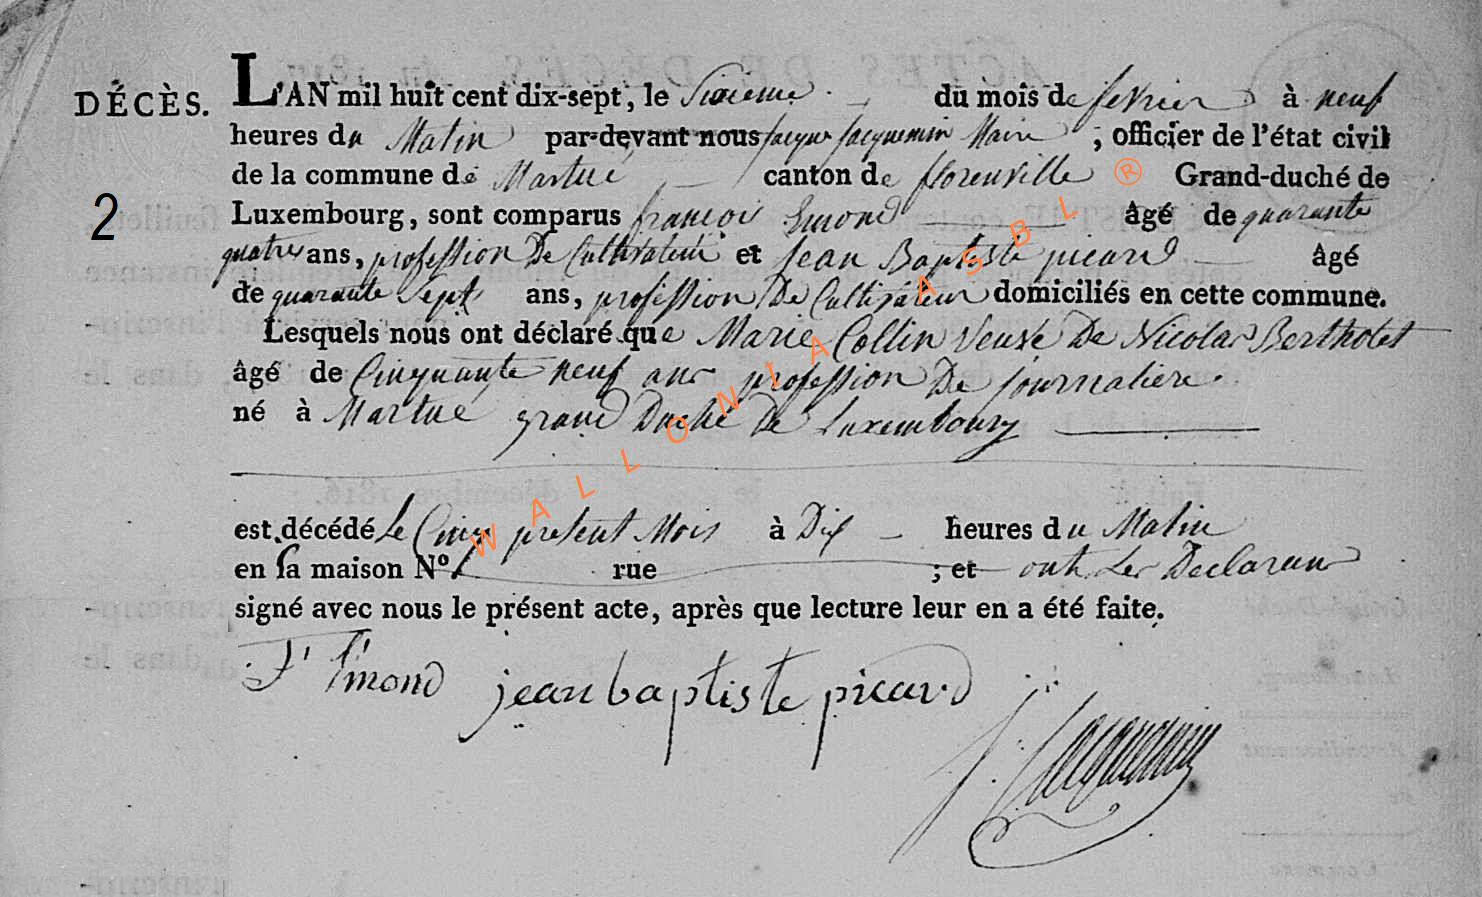 DÉCÈS. L'AN mil huit cent dix-sept, le Sixieme du mois de fevrier à neuf
heures du Matin par-devant nous jacque jacquemin Maire, officier de l'état civil
de la commune de Martué canton de florenville Grand-duché de
2 Luxembourg, sont comparus françois Simond âgé de quarante
quatre ans, profession De Cultivateur et jean Baptiste picard âgé
de quarante Sept ans, profession De Cultivateur domiciliés en cette commune.
Lesquels nous ont déclaré que Marie Collin veuve De Nicolas Bertholet
âgé de Cinquante neuf ans profession De journaliere.
né à Martué grand Duché De Luxembourg
est décédé le Cinq present Mois à Dix heures du Matin
en sa maison N° rue ; et ont les Declarans
signé avec nous le présent acte, après que lecture leur en a été faite.
jean baptiste picard
J. Jacquemin
WALLONIA ASBL ®